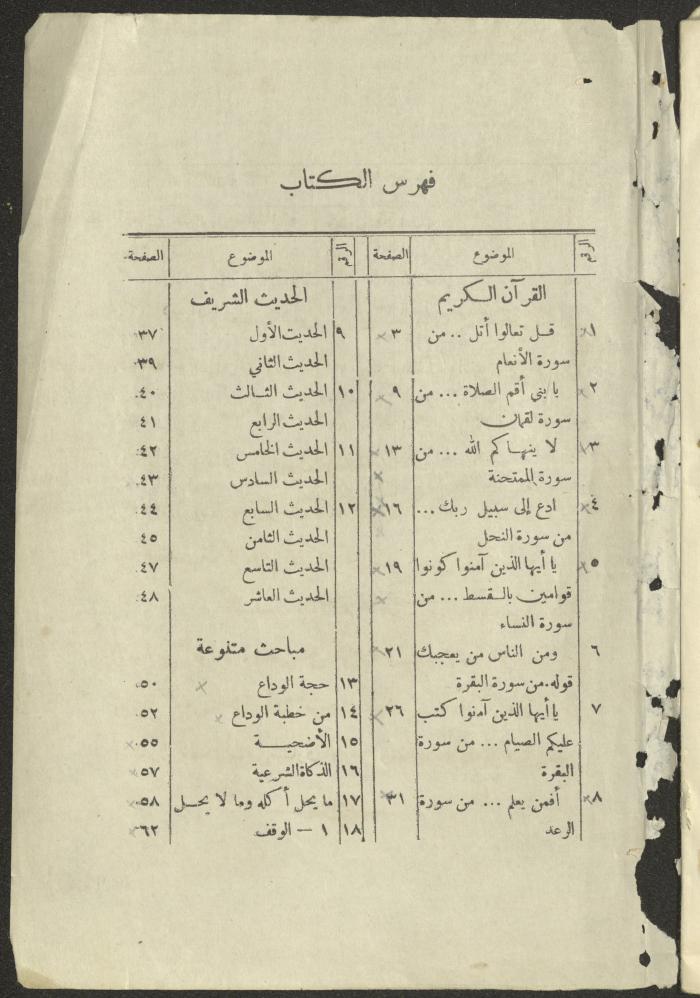 فهرس الكتاب
الرقم الموضوع الصفحة
القرآن الكريم
١ قل تعالوا أتل .. من ٣
سورة الأنعام
٢ يا بني أقم الصلاة ... من ٩
سورة لقمان
٣ لا ينهاكم الله ... من ١٣
سورة الممتحنة
٤ ادع إلى سبيل ربك ... ١٦
من سورة النحل
٥ يا أيها الذين آمنوا كونوا ١٩
قوامين بالقسط ... من
سورة النساء
٦ ومن الناس من يعجبك ٢١
قوله.من سورة البقرة
٧ يا أيها الذين آمنوا كتب ٢٦
عليكم الصيام ... من سورة
البقرة
٨ أفمن يعلم ... من سورة ٣١
الرعد
الرقم الموضوع الصفحة
الحديث الشريف
٩ الحديث الأول ٣٧
الحديث الثاني ٣٩
١٠ الحديث الثالث ٤٠
الحديث الرابع ٤١
١١ الحديث الخامس ٤٢
الحديث السادس ٤٣
١٢ الحديث السابع ٤٤
الحديث الثامن ٤٥
الحديث التاسع ٤٧
الحديث العاشر ٤٨
مباحث متنوعة
١٣ حجة الوداع ٥٠
١٤ من خطبة الوداع ٥٢
١٥ الأضحية ٥٥
١٦ الذكاة الشرعية ٥٧
١٧ ما يحل أكله وما لا يحل ٥٨
١٨ ١ – الوقف ٦٢